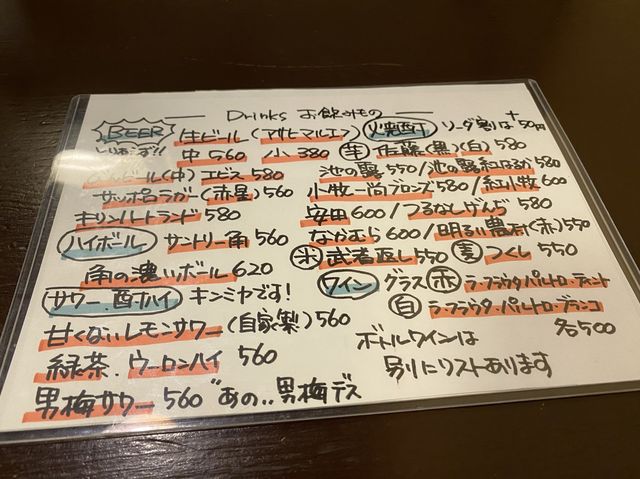 Drinks お飲みもの
BEER 生ビール(アサヒマルエフ)
とりあえず!! 中 560 小 380
ビール(中)エビス 580
サッポロラガー(赤星)560
キリンハートランド 580
ハイボール サントリー角 560
角の濃いボール 620
サワー.酎ハイ キンミヤです!
甘くないレモンサワー(自家製)560
緑茶.ウーロンハイ 560
男梅サワー 560 "あの..男梅デス
焼酎 ソーダ割は+50円
芋 佐藤(黒)(白)580
池の露 550/池の露紅はるか 580
小牧一尚ブロンズ 580/紅小牧 600
安田 600/つるなしげんぢ 580
なかむら 600/明るい農村(赤)550
米 武者返し 550 麦 つくし 550
ワイン グラス 赤 ラ・フラウタ・パルトロ・ティント
白 ラ・フラウタ・パルトロ・ブランコ
各500
ボトルワインは
別にリストあります